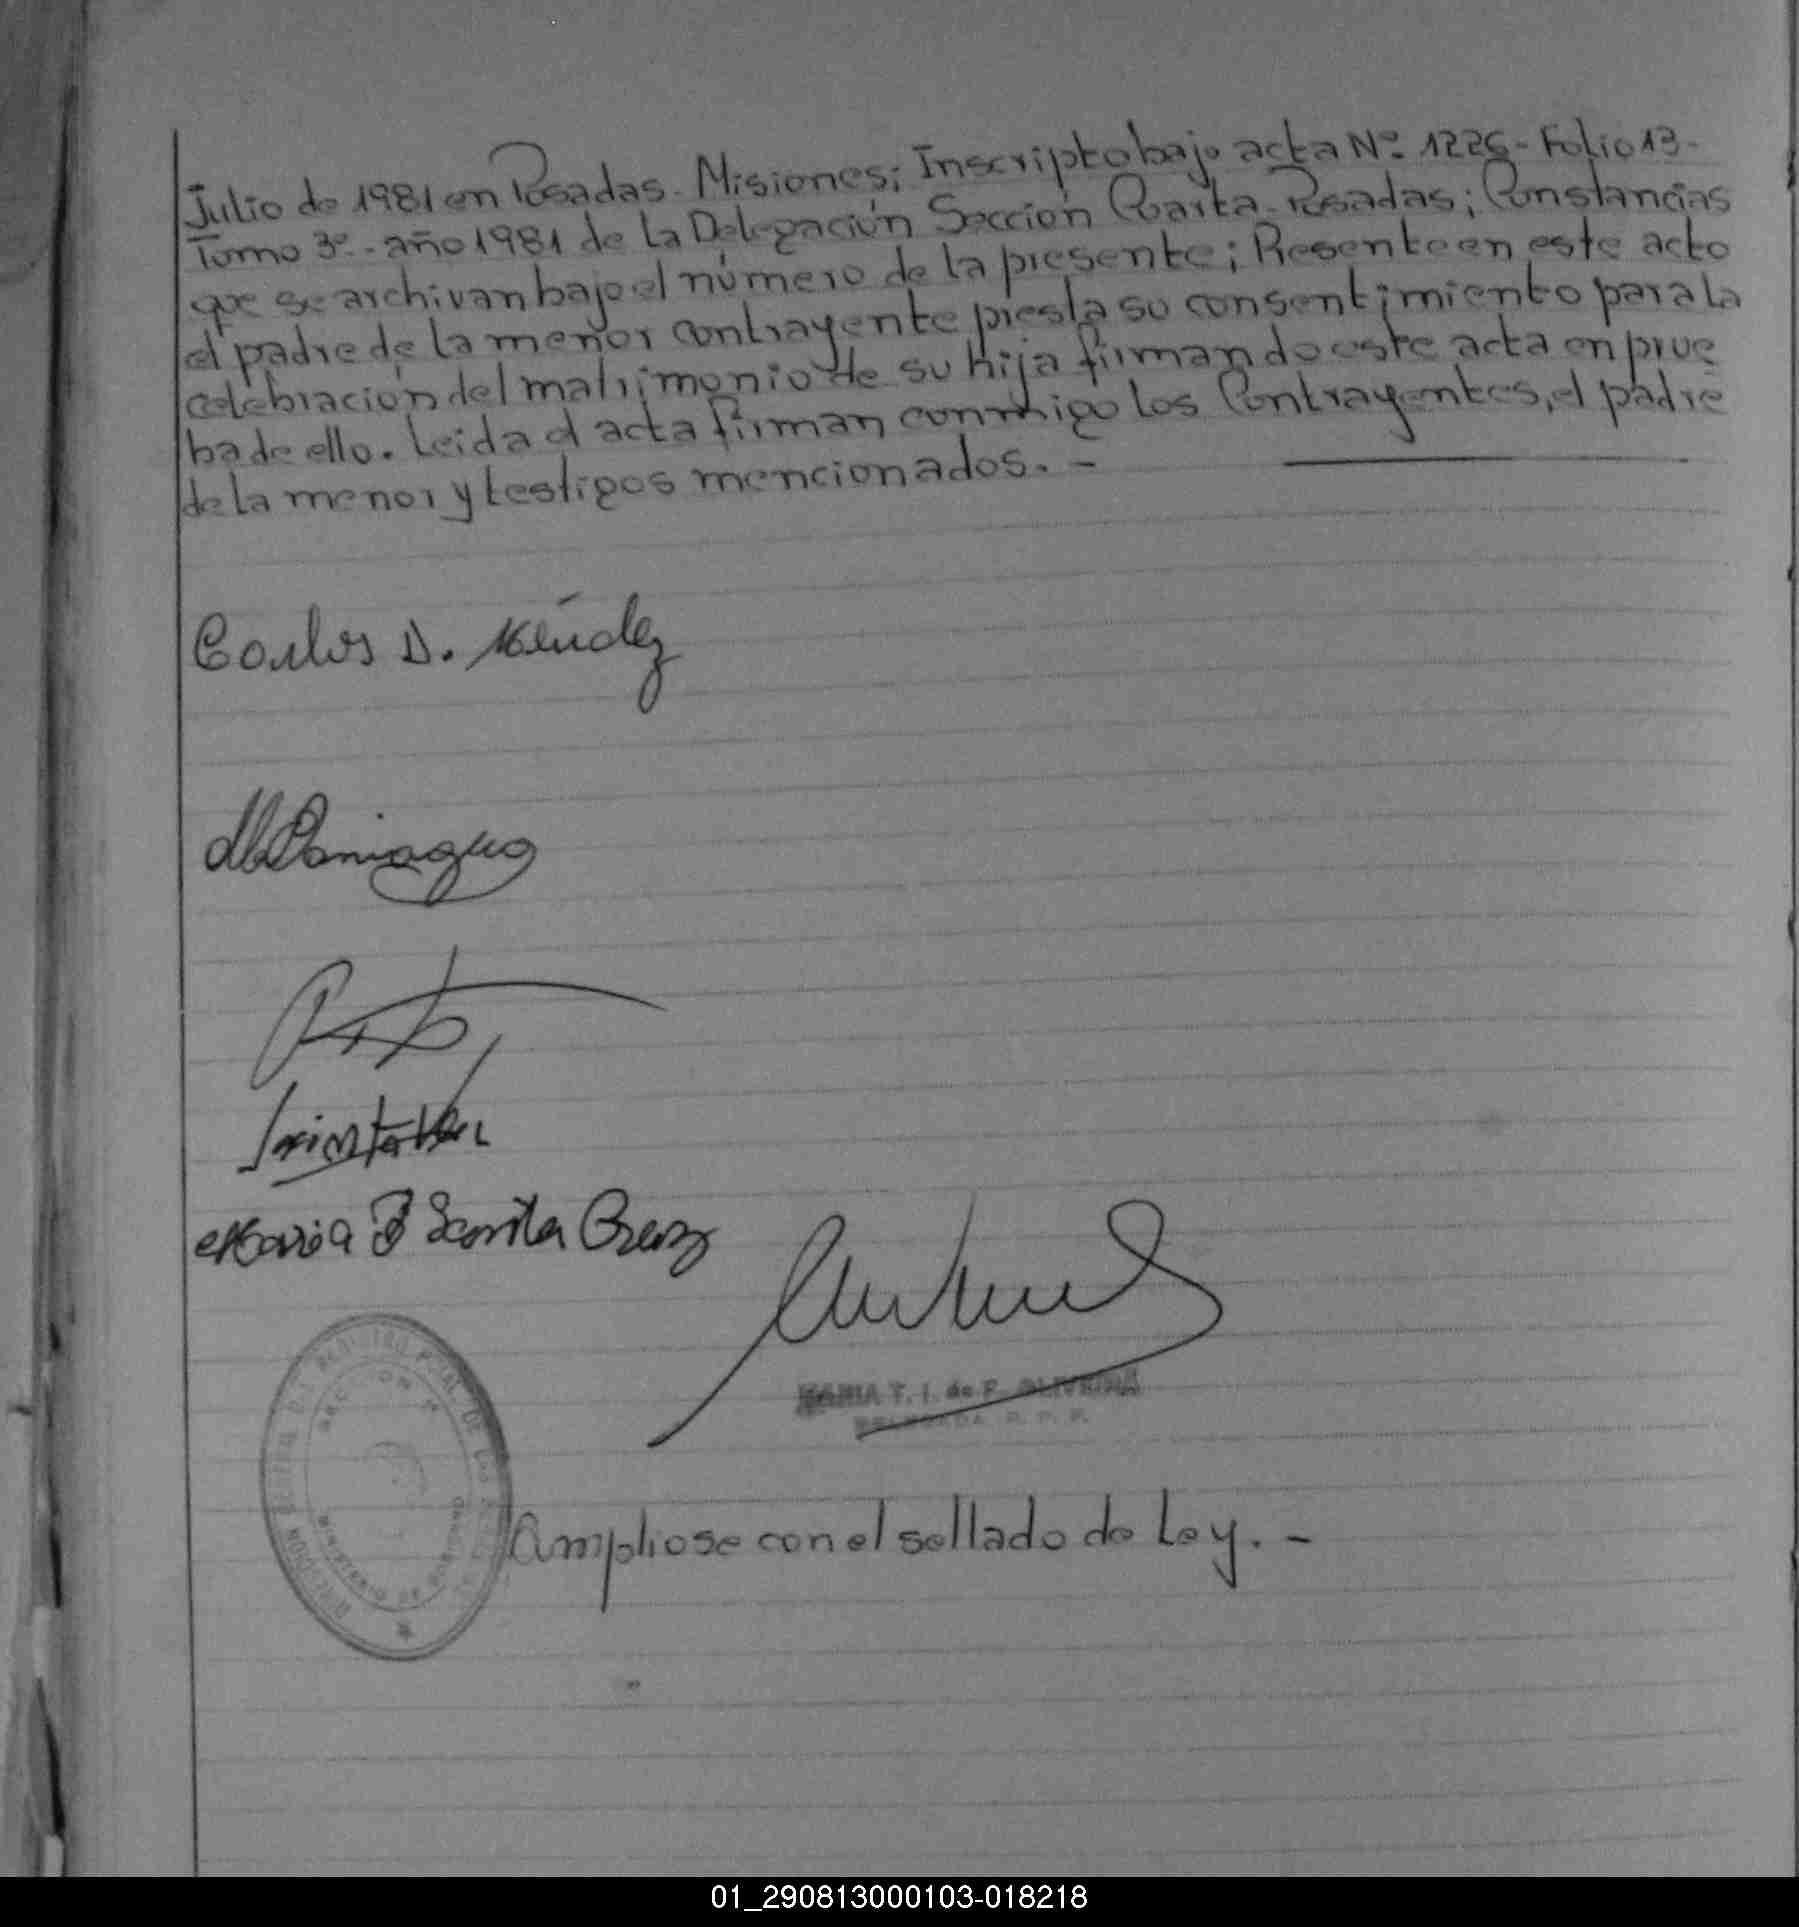 Julio de 1981 en Posadas - Misiones; Inscripto bajo acta Nº 1226 - Folio 13 -
Tomo 3º - año 1981 de la Delegación Sección Cuarta - Posadas; Constancias
que se archivan bajo el número de la presente; Presente en este acto
el padre de la menor contrayente presta su consentimiento para la
celebración del matrimonio de su hija firmando este acta en prue
ba de ello. Leida el acta firman conmigo los Contrayentes, el padre
de la menor y testigos mencionados. -
Carlos D. Méndez
Paniagua
Maria
MARIA T. I. de F. OLIVEIRA
DELEGADA R. P. P.
Ampliose con el sellado de Ley. -
01_290813000103-018218